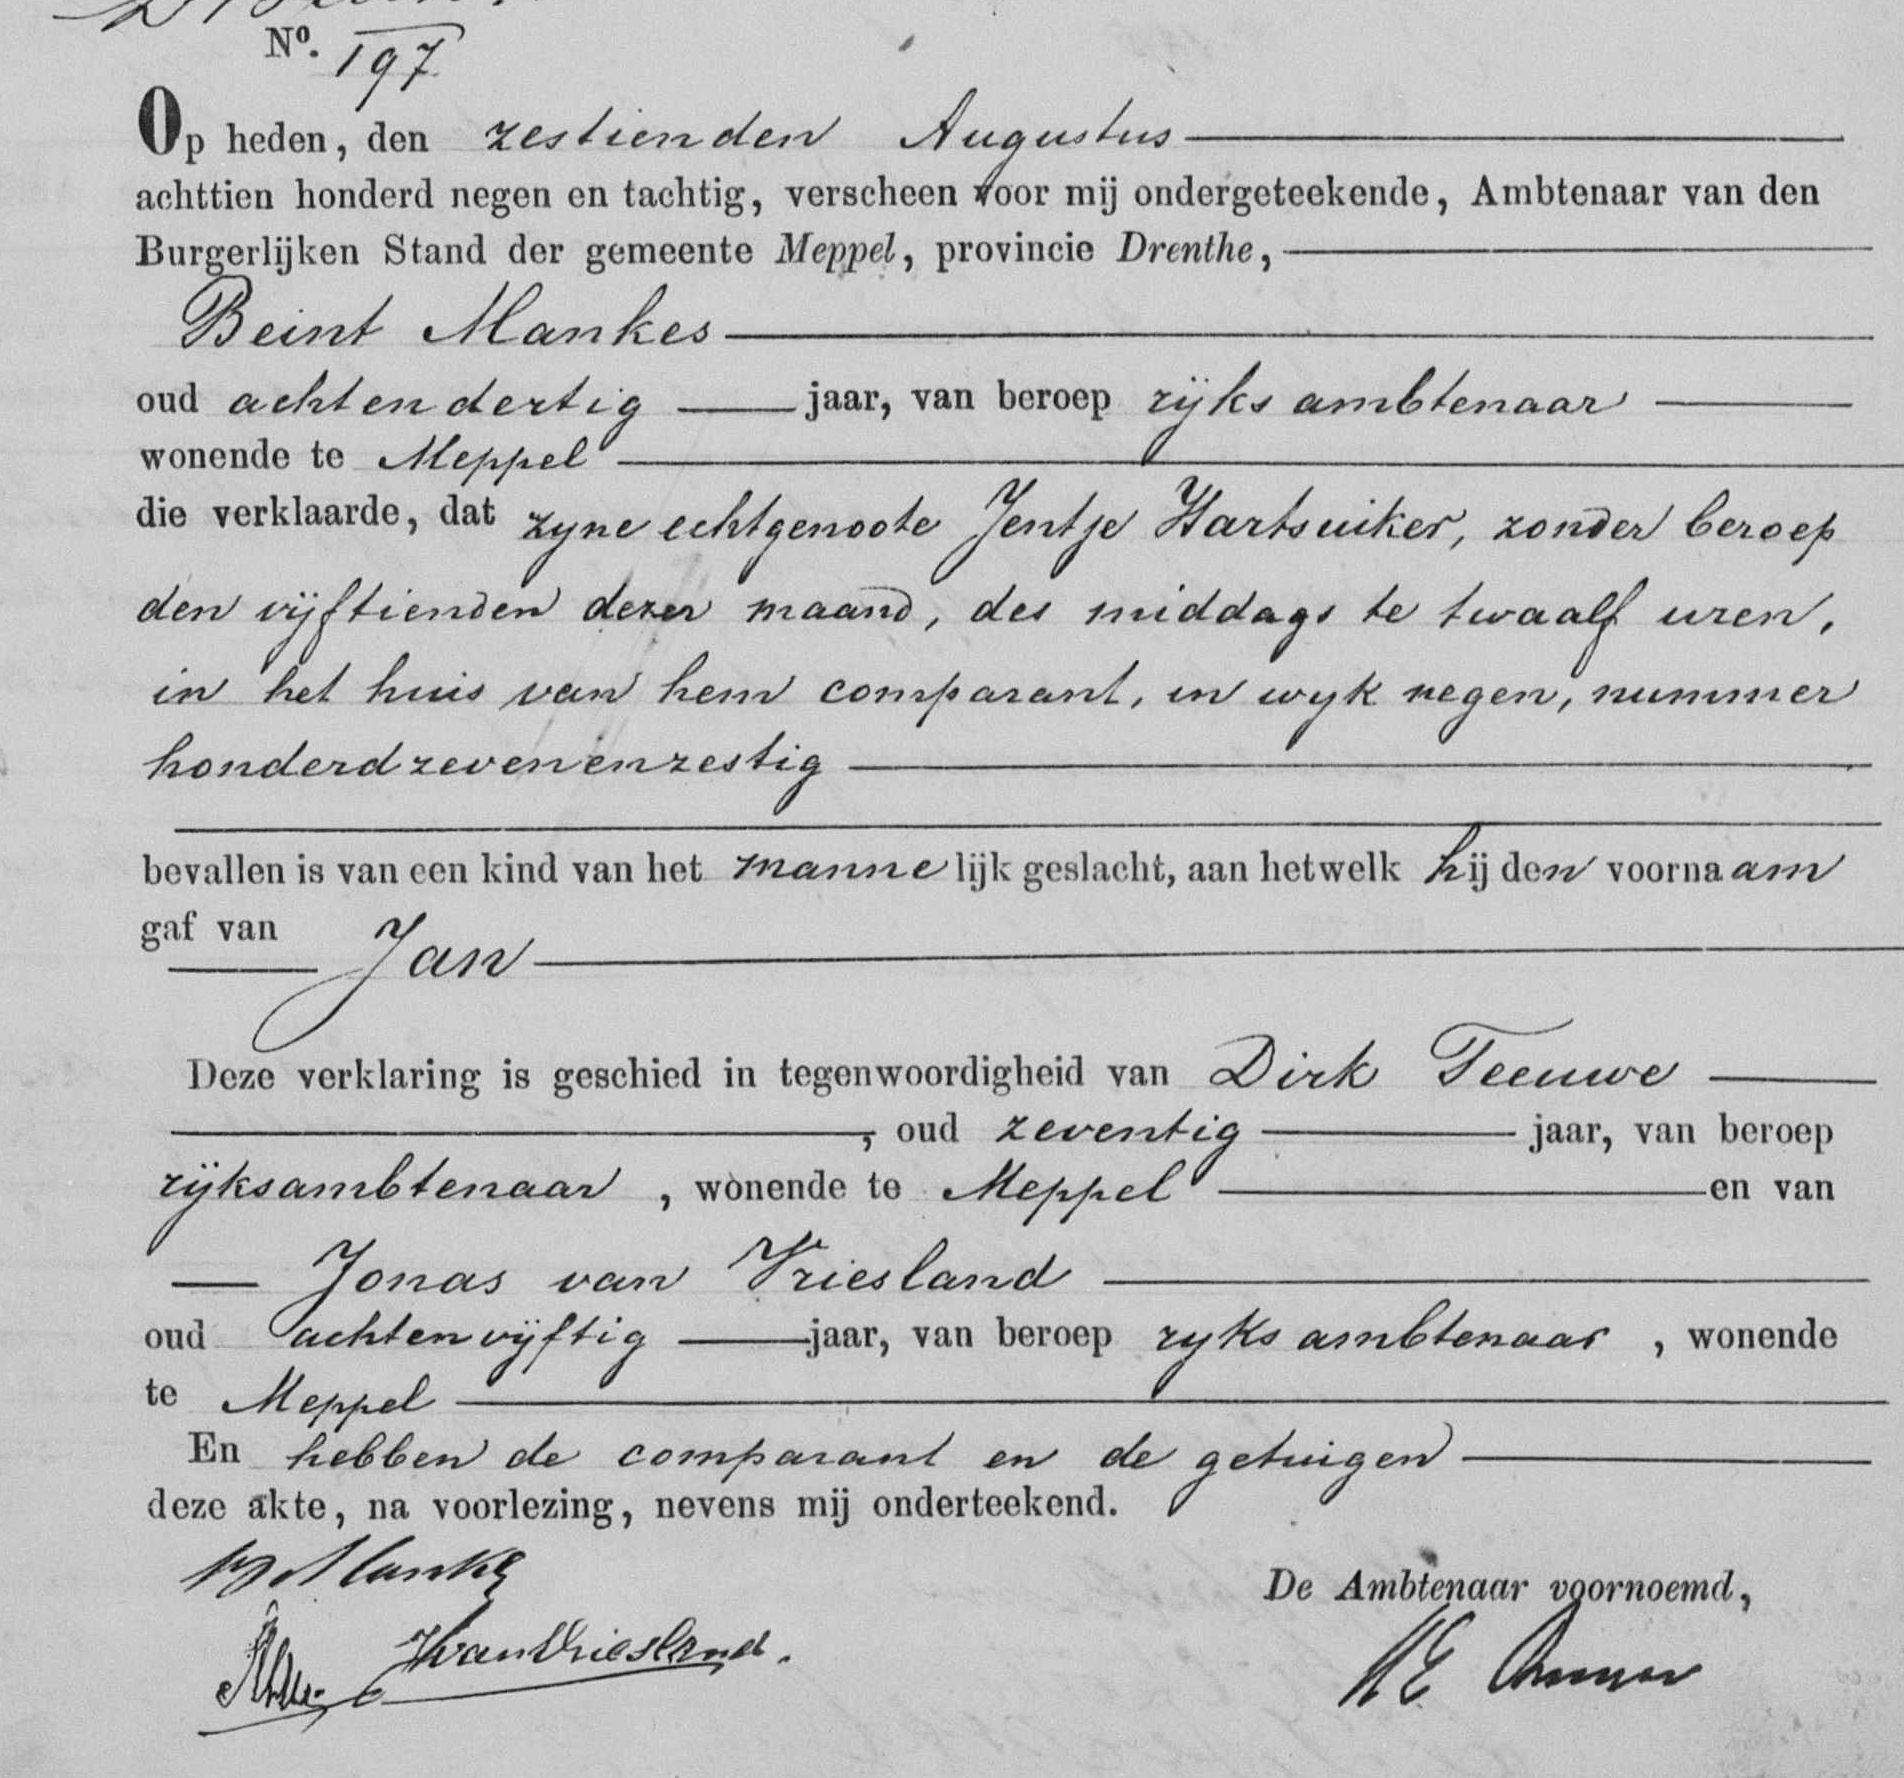 No. 197
Op heden, den zestienden Augustus
achttien honderd negen en tachtig, verscheen voor mij ondergeteekende, Ambtenaar van den
Burgerlijken Stand der gemeente Meppel, provincie Drenthe,
Beint Mankes
oud achtendertig jaar, van beroep rijksambtenaar
wonende te Meppel
die verklaarde, dat zyne echtgenoote Jentje Hartsuiker, zonder beroep
den vijftienden dezer maand, des middags te twaalf uren,
in het huis van hem comparant, in wyk negen, nummer
honderdzevenenzestig
bevallen is van een kind van het mannelijk geslacht, aan hetwelk hij den voornaam
gaf van Jan
Deze verklaring is geschied in tegenwoordigheid van Dirk Teeuwe
, oud zeventig jaar, van beroep
rijksambtenaar, wonende te Meppel en van
Jonas van Vriesland
oud achtenvijftig jaar, van beroep ryksambtenaar, wonende
te Meppel
En hebben de comparant en de getuigen
deze akte, na voorlezing, nevens mij onderteekend.
B Mankes
De Ambtenaar voornoemd,
JvanVriesland.